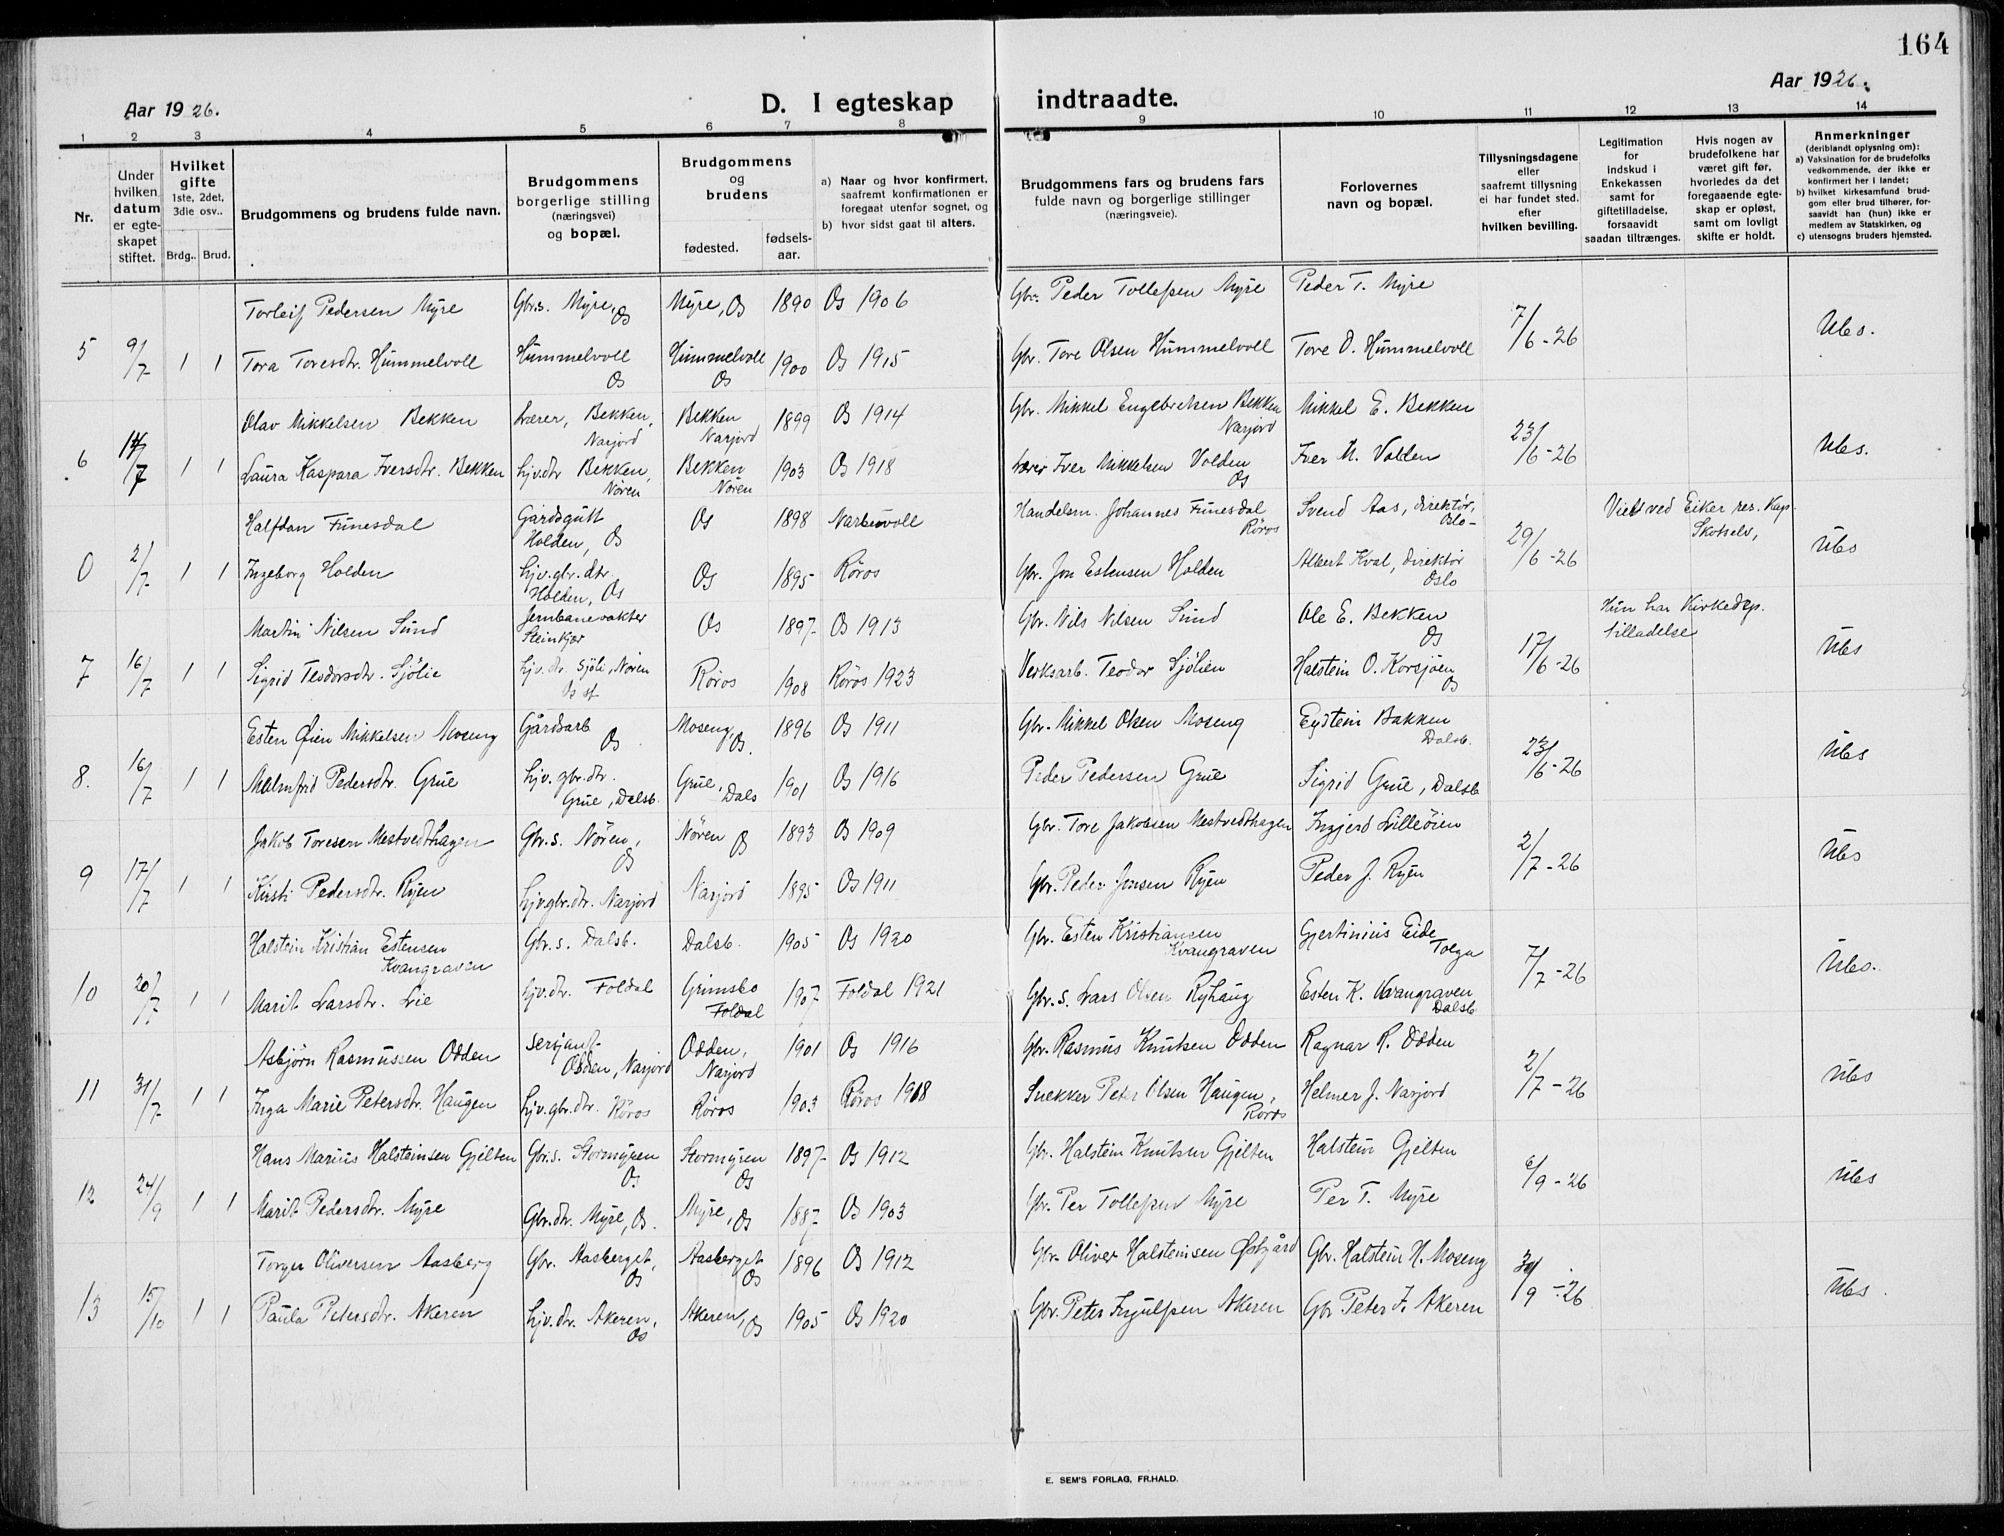 164
Aar 1926.
D. I egteskap indtraadte.
Aar 1926.
1 2 3 4 5 6 7 8 9 10 11 12 13 14
Nr.
Under hvilken datum er egteskapet stiftet.
Hvilket gifte 1ste, 2det, 3die osv..
Brdg..
Brud.
Brudgommens og brudens fulde navn.
Brudgommens borgerlige stilling (næringsvei) og bopæl.
Brudgommens og brudens
fødested.
fødsels-aar.
a) Naar og hvor konfirmert, saafremt konfirmationen er foregaat utenfor sognet, og
b) hvor sidst gaat til alters.
Brudgommens fars og brudens fars fulde navn og borgerlige stillinger (næringsveie).
Forlovernes navn og bopæl.
Tillysningsdagene eller saafremt tillysning ei har fundet sted. efter hvilken bevilling.
Legitimation for indskud i Enkekassen samt for giftetilladelse, forsaavidt saadan tiltrænges.
Hvis nogen av brudefolkene har været gift før, hvorledes da det foregaaende egteskap er opløst, samt om lovligt skifte er holdt.
Anmerkninger (deriblandt oplysning om):
a) Vaksination for de brudefolks vedkommende, der ikke er konfirmert her i landet;
b) hvilket kirkesamfund brudgom eller brud tilhører, forsaavidt han (hun) ikke er medlem av Statskirken, og
c) utensogns bruders hjemsted.
Torleif Pedersen Myre Gbr.s. Myre, Os Myre, Os 1890 Os 1906 Gbr. Peder Tollefsen Myre Peder T. Myre
5 9/7 1 1 Tora Toresdtr. Hummelvoll Hummelvoll Os Hummelvoll Os 1900 Os 1915 Gbr. Tore Olsen Hummelvoll Tore O. Hummelvoll 7/6-26 Ubs.
Olav Mikkelsen Bekken Lærer, Bekken, Narjord Bekken Narjord 1899 Os 1914 Gbr. Mikkel Engebretsen Bekken Narjord Mikkel E. Bekken
6 14/7 1 1 Laura Kaspara Iversdtr. Bekken Hjv.dtr Bekken, Nøren Bekken Nøren 1903 Os 1918 Lærer Iver Mikkelsen Volden Os Iver M. Volden 23/6-26 Ubs.
Halfdan Funesdal Gårdsgutt Holden, Os Os 1898 Narbuvoll Handelsm. Johannes Funesdal Røros Svend Aas, direktør, Oslo- Viet ved Eiker res. Kap. Skotselv,
0 2/7 1 1 Ingeborg Holden Hjv.gbr.dtr Holden, Os Os 1895 Røros Gbr. Jon Estensen Holden Albert Kval, direktør Oslo 29/6-26 Ubs
Martin Nilsen Sund Jernbanevokter Steinkjær Os 1897 Os 1913 Gbr. Nils Nilsen Sund Ole E. Bekken Os Hun har Kirkedep. tilladelse
7 16/7 1 1 Sigrid Teodorsdtr. Sjølie Hjv.dtr. Sjøli, Nøren Os st Røros 1908 Røros 1923 Verksarb. Teodor Sjølien Halstein O. Korsjøen Os 17/6-26 Ubs
Esten Øien Mikkelsen Moseng Gårdsarb Os Moseng, Os. 1896 Os 1911 Gbr. Mikkel Olsen Moseng Eystein Bakken Dalsb.
8. 16/7 1 1 Malmfrid Pedersdtr. Grue Hjv. gbr.dtr. Grue, Dalsb. Grue, Dals 1901 Os 1916 Peder Pedersen Grue Sigrid Grue, Dalsb 23/6-26 Ubs
Jakob Toresen Mestvedthagen Gbr.s. Nøren, Os Nøren Os 1893 Os 1909 Gbr. Tore Jakobsen Mestvedthagen Ingjerd Lilleøien
9 17/7 1 1 Kirsti Pedersdtr. Ryen Hjv.gbr.dtr. Narjord Narjord 1895 Os 1911 Gbr. Peder Jonsen Ryen Peder J. Ryen 2/7-26 Ubs
Halstein Kristian Estensen Kvangraven Gbr.s. Dalsb. Dalsb. 1905 Os 1920 Gbr. Esten Kristiansen Kvangraven Gjertinius Eide Tolga
10 20/7 1 1 Marit Larsdtr. Lie Hjv.dtr. Foldal Grimsbo Foldal 1907 Foldal 1921 Gbr.s. Lars Olsen Ryhaug Esten K. Kvangraven Dalsb 7/7-26 Ubs.
Asbjørn Rasmussen Odden sersjant Odden, Narjord Odden, Narjord 1901 Os 1916 Gbr. Rasmus Knutsen Odden Ragnar R. Odden
11 31/7 1 1 Inga Marie Petersdtr. Haugen Hjv.gbr.dtr. Røros Røros 1903 Røros 1918 Snekker Peter Olsen Haugen, Røros Helmer J. Narjord 2/7-26 Ubs
Hans Marius Halsteinsen Gjelten Gbr.s. Stormyren Os Stormyren Os 1897 Os 1912 Gbr. Halstein Knutsen Gjelten Halstein Gjelten
12 24/9 1 1 Marit Pedersdtr. Myre Gbr.dtr. Myre, Os. Myre, Os 1887 Os 1903 Gbr. Per Tollefsen Myre Per T. Myre 6/9-26 Ubs
Torger Oliversen Aasberg Gbr. Aasberget, Os Aasberget Os 1896 Os 1912 Gbr. Oliver Halsteinsen Østgård Gbr. Halstein H. Moseng
13 15/10 1 1 Paula Petersdtr. Akeren Hjv.dtr. Akeren, Os Akeren, Os 1905 Os 1920 Gbr. Peter Ingulfsen Akeren Gbr Peter J. Akeren 30/9-26 Ubs
E. SEM'S FORLAG, FR.HALD.